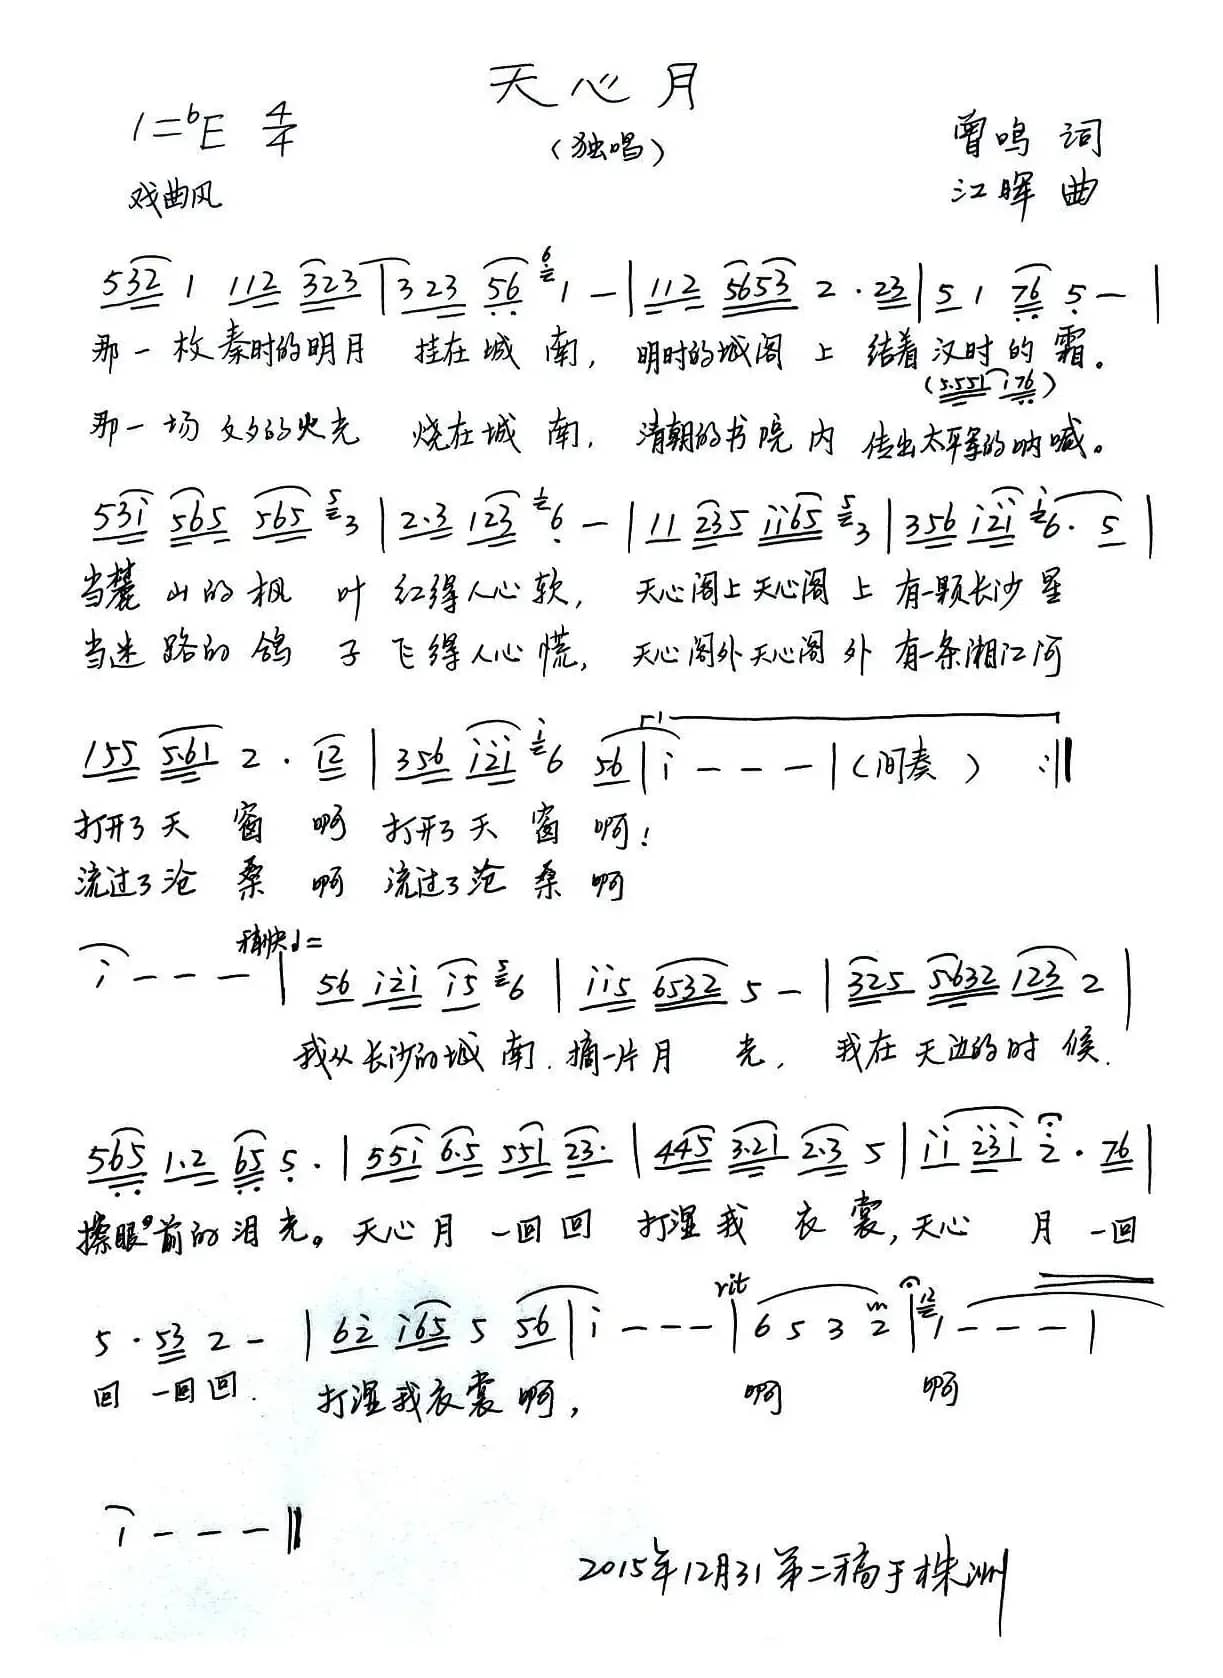 天心月
1=bE 4/4
(独唱)
曾鸣 词
戏曲风
江晖 曲
532 1 112 323 | 323 56 6 1 - | 112 5653 2 · 23 | 5 1 76 5 - |
那一枚秦时的明月 挂在城南, 明时的城阁上 结着汉时的霜。
(5.551 i76)
那一场文夕的火光 烧在城南, 清朝的书院内 传出太平军的呐喊。
53i 565 565 5 3 | 2.3 123 1 6 - | 11 235 ii65 5 3 | 356 i2i i 6 · 5 |
当麓山的枫叶红得人心软, 天心阁上天心阁上有一颗长沙星
当迷路的鸽子飞得人心慌, 天心阁外天心阁外有一条湘江河
155 5.61 2 · 12 | 356 i2i i 6 56 | i - - - | (间奏) :||
打开了天窗啊 打开了天窗啊!
流过了沧桑啊 流过了沧桑啊
i - - - | 稍快♩= 56 i2i i5 5 6 | ii5 6532 5 - | 325 5.632 123 2 |
我从长沙的城南.摘一片月光, 我在天边的时候.
565 1.2 65 5 · | 55i 6.5 551 23· | 445 3.21 2.3 5 | ii 23i 2 · 76 |
擦眼前的泪光。天心月一回回 打湿我衣裳,天心月一回
rit
5 · 53 2 - | 62 i65 5 56 | i - - - | 6 5 3 2 | 12 1 - - - |
回一回回. 打湿我衣裳啊, 啊 啊
i - - - ||
2015年12月31第二稿于株洲